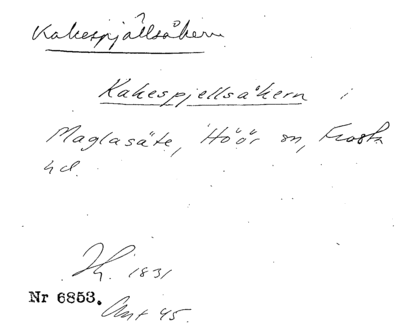 Kakespjällsåkern
Kakespjellsåkern i
Maglasäte, Höör sn, Frosta
hd.
Hy. 1831
Nr 6853.
Akt 45.